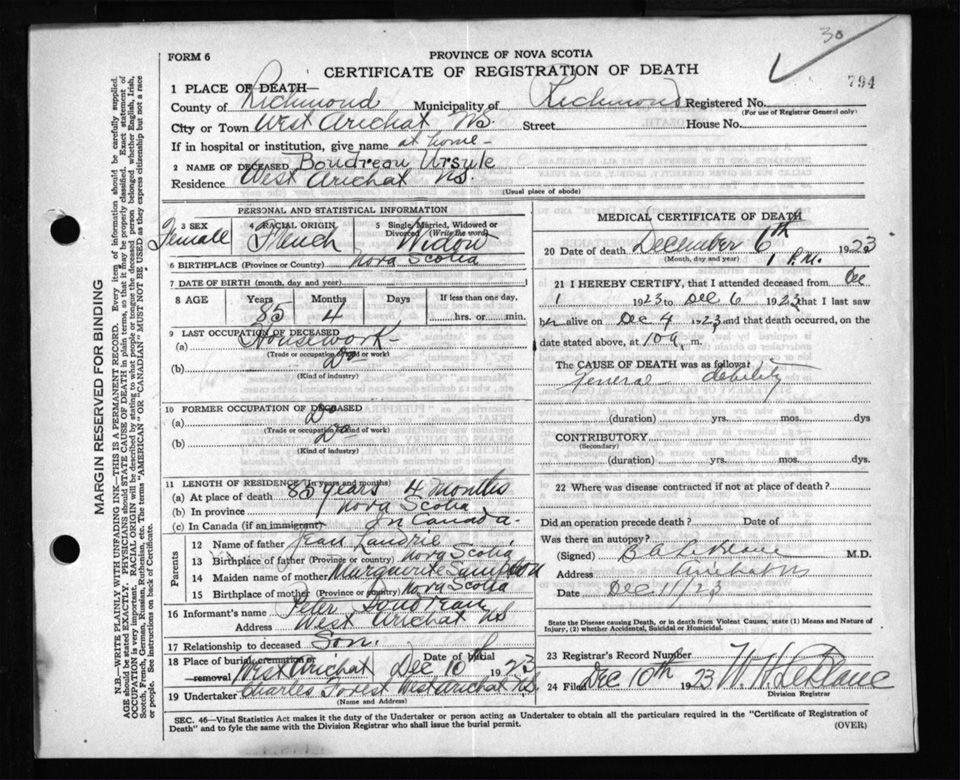 30
FORM 6
PROVINCE OF NOVA SCOTIA
CERTIFICATE OF REGISTRATION OF DEATH
794
1 PLACE OF DEATH—
County of Richmond Municipality of Richmond Registered No.
(For use of Registrar General only)
City or Town West Arichat N.S. Street House No.
If in hospital or institution, give name at home-
2 NAME OF DECEASED Boudreau Ursule
Residence West Arichat NS.
(Usual place of abode)
PERSONAL AND STATISTICAL INFORMATION
3 SEX Female
4 RACIAL ORIGIN French
5 Single, Married, Widowed or Divorced (Write the word) Widow
6 BIRTHPLACE (Province or Country) Nova Scotia
7 DATE OF BIRTH (month, day and year)
8 AGE Years Months Days If less than one day,
85 4 hrs. or min.
9 LAST OCCUPATION OF DECEASED
(a) Housework-
(Trade or occupation, kind or work)
(b) Do
(Kind of industry)
10 FORMER OCCUPATION OF DECEASED
(a) Do
(Trade or occupation, kind or work)
(b) Do
(Kind of industry)
11 LENGTH OF RESIDENCE (in years and months)
(a) At place of death 85 years 4 months
(b) In province Nova Scotia
(c) In Canada (if an immigrant) In Canada.
Parents
12 Name of father Jean Landrie
13 Birthplace of father (Province or country) Nova Scotia
14 Maiden name of mother Marguerite Sampson
15 Birthplace of mother (Province or country) Nova Scotia
16 Informant's name Peter Boudreau
Address West Arichat NS
17 Relationship to deceased Son.
18 Place of burial, cremation or removal West Arichat Date of burial Dec 10th 1923
19 Undertaker Charles Forest West Arichat N.S.
(Name and Address)
MEDICAL CERTIFICATE OF DEATH
20 Date of death December 6th 1923
(Month, day and year) 1 P.M.
21 I HEREBY CERTIFY, that I attended deceased from Dec
1 1923 to Dec 6 1923 that I last saw
her alive on Dec 4 1923 and that death occurred, on the
date stated above, at 10 a. m.
The CAUSE OF DEATH was as follows:
General debility
(duration) yrs. mos. dys
CONTRIBUTORY
(Secondary)
(duration) yrs. mos. dys.
22 Where was disease contracted if not at place of death?
Did an operation precede death? Date of
Was there an autopsy?
(Signed) B A LeBlanc M.D.
Address Arichat NS
Date Dec 11/23
State the Disease causing Death, or in death from Violent Causes, state (1) Means and Nature of
Injury, (2) whether Accidental, Suicidal or Homicidal.
23 Registrar's Record Number
24 Filed Dec 10th 1923 W. H. LeBlanc
Division Registrar
SEC. 46—Vital Statistics Act makes it the duty of the Undertaker or person acting as Undertaker to obtain all the particulars required in the "Certificate of Registration of
Death" and to fyle the same with the Division Registrar who shall issue the burial permit.
(OVER)
MARGIN RESERVED FOR BINDING
N.B.—WRITE PLAINLY WITH UNFADING INK—THIS IS A PERMANENT RECORD. Every item of information should be carefully supplied.
AGE should be stated EXACTLY. PHYSICIANS should STATE CAUSE OF DEATH in plain terms, so that it may be properly classified. Exact statement of
OCCUPATION is very important. RACIAL ORIGIN will be described by stating to what people or tongue the deceased person belonged whether English, Irish,
Scotch, French, German, Russian, Ruthenian, etc. The terms "AMERICAN" OR "CANADIAN" MUST NOT BE USED as they express citizenship but not a race
or people. See instructions on back of Certificate.